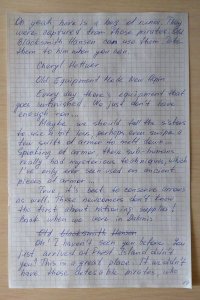 Oh yeah, here is a bag of runes. They
were captured from those pirates. Old
Blacksmith Hansen can use them. Take
them to him when you can.
Cheryl Hollwer
Old Equipment Made New Again
Every day there's equipment that
goes unfinished. We just don't have
enough iron...
Maybe we should tell the sisters
to use a bit less, perhaps even swipe a
few suits of armor to melt down.
Speaking of armor, these sub-humans
really had mysterious techniques, which
I've only ever been used on ancient
pieces of armor.
True, it's best to conserve arrows
as well. These newcomers don't know
the first about rationing supplies!
Back when we were in
Old Blacksmith Hansen
Oh! I haven't seen you before. You
just arrived at Island didn't
you? This is a great place. If wouldn't
have those detestable pirates, who